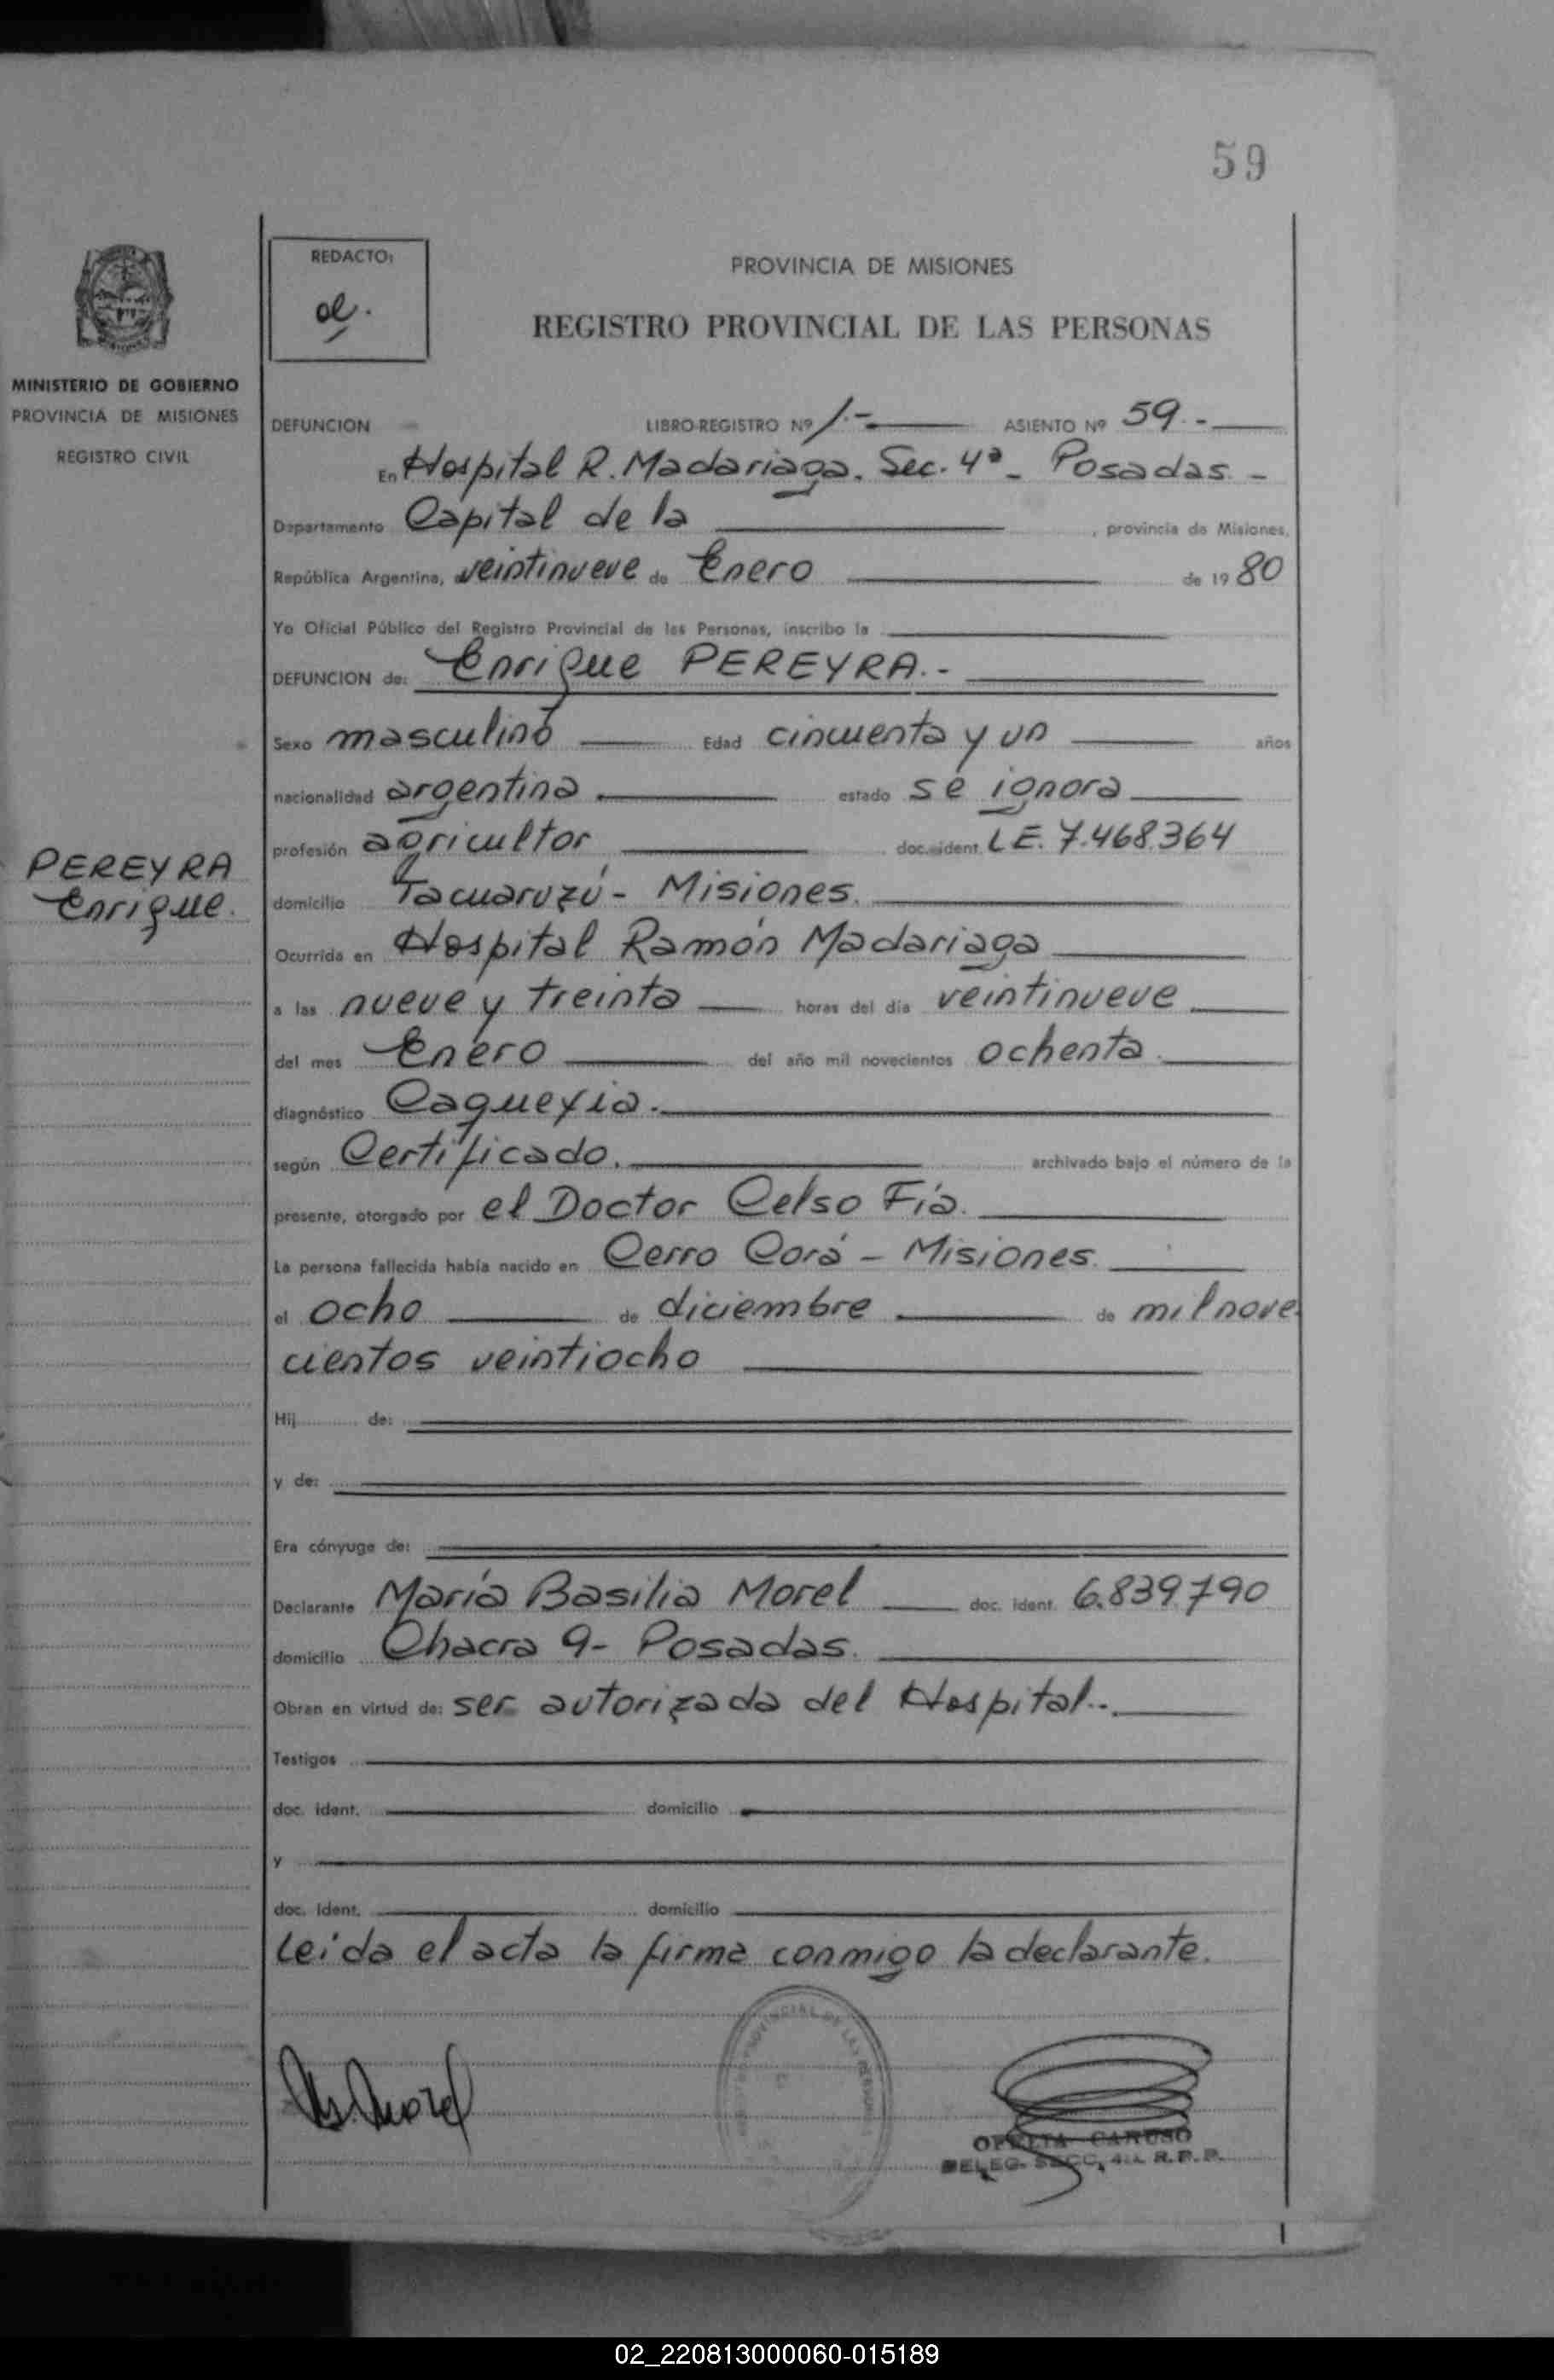 59
REDACTO:
PROVINCIA DE MISIONES
REGISTRO PROVINCIAL DE LAS PERSONAS
MINISTERIO DE GOBIERNO
PROVINCIA DE MISIONES
REGISTRO CIVIL
DEFUNCION LIBRO-REGISTRO Nº 1.- ASIENTO Nº 59.-
En Hospital R. Madariaga. Sec. 4ª - Posadas -
Departamento Capital de la , provincia de Misiones,
República Argentina, veintinueve de Enero de 1980
Yo Oficial Público del Registro Provincial de las Personas, inscribo la
DEFUNCION de: Enrique PEREYRA.-
Sexo masculino Edad cincuenta y un años
nacionalidad argentina estado se ignora
profesión agricultor doc. ident. L E. 7.468.364
PEREYRA
Enrique.
domicilio Tacuaruzú - Misiones.
Ocurrida en Hospital Ramón Madariaga
a las nueve y treinta horas del día veintinueve
del mes Enero del año mil novecientos ochenta
diagnóstico Caquexia.
según Certificado. archivado bajo el número de la
presente, otorgado por el Doctor Celso Fia.
La persona fallecida había nacido en Cerro Corá - Misiones.
el ocho de diciembre de mil nove-
cientos veintiocho
Hij de:
y de:
Era cónyuge de:
Declarante María Basilia Morel doc. ident. 6.839.790
domicilio Chacra 9- Posadas.
Obran en virtud de: ser autorizada del Hospital.-
Testigos
doc. ident. domicilio
y
doc. ident. domicilio
Leída el acta la firma conmigo la declarante.
OFELIA CARUSO
DELEG. SECC. 4ta. R.P.P.
02_220813000060-015189